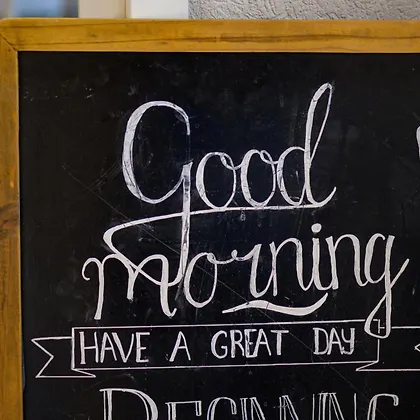 Good
morning
HAVE A GREAT DAY
BEGINNING